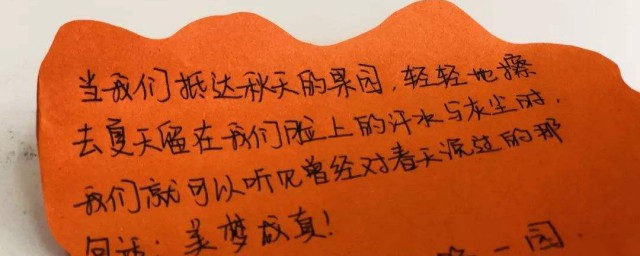 当我们抵达秋天的果园，轻轻地擦
去夏天留在我们脸上的汗水与灰尘时，
我们就可以听见曾经对春天说过的那
句话：美梦成真！
一园